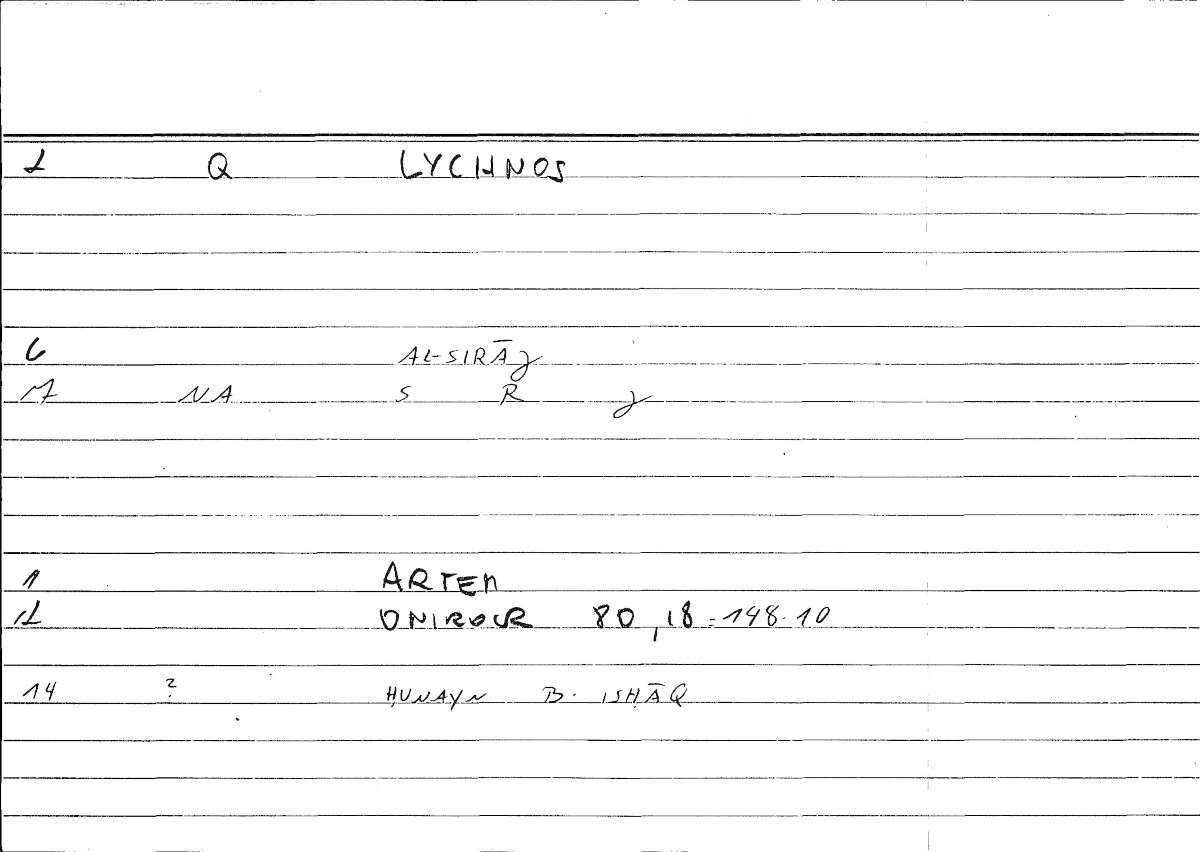 1 Q LYCHNOS
6 AL-SIRĀJ
7 NA S R J
1 ARTEM
12 ONIROCR 80,18 = 148.10
14 ? ḤUNAYN B. ISḤĀQ